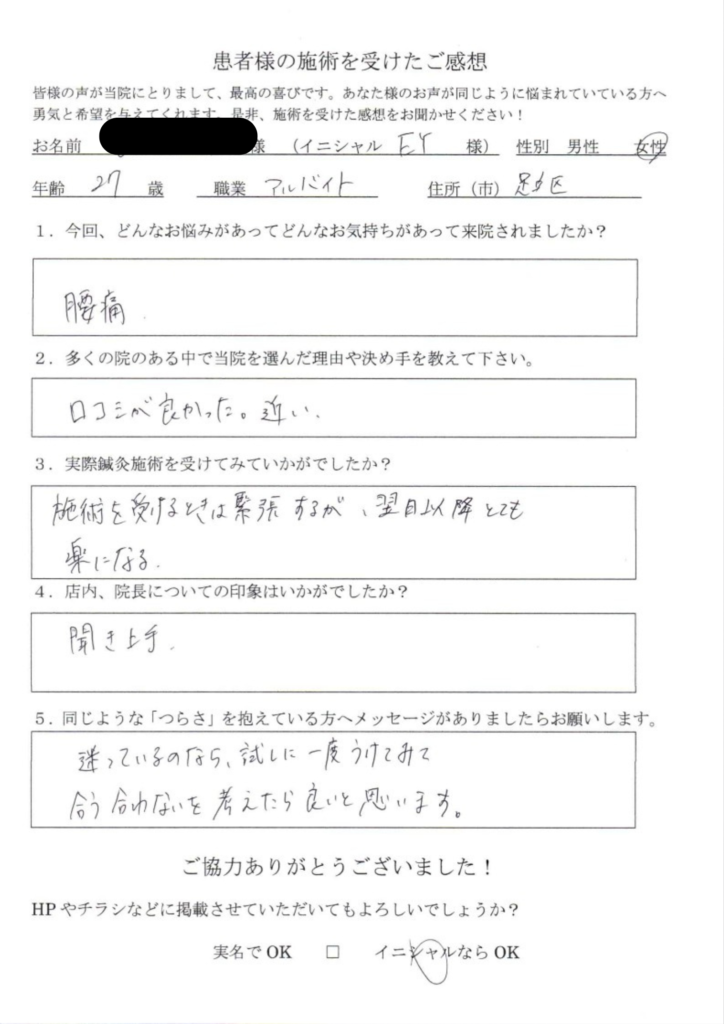 患者様の施術を受けたご感想
皆様の声が当院にとりまして、最高の喜びです。あなた様のお声が同じように悩まれていている方へ
勇気と希望を与えてくれます。是非、施術を受けた感想をお聞かせください！
お名前 様 （イニシャル EY 様） 性別 男性 女性
年齢 27 歳 職業 アルバイト 住所（市） 足立区
１．今回、どんなお悩みがあってどんなお気持ちがあって来院されましたか？
腰痛.
２．多くの院のある中で当院を選んだ理由や決め手を教えて下さい。
口コミが良かった。近い.
３．実際鍼灸施術を受けてみていかがでしたか？
施術を受けるときは緊張するが、翌日以降とても
楽になる.
４．店内、院長についての印象はいかがでしたか？
聞き上手.
５．同じような「つらさ」を抱えている方へメッセージがありましたらお願いします。
迷っているのなら、試しに一度うけてみて
合う合わないを考えたら良いと思います。
ご協力ありがとうございました！
HPやチラシなどに掲載させていただいてもよろしいでしょうか？
実名でOK □ イニシャルならOK